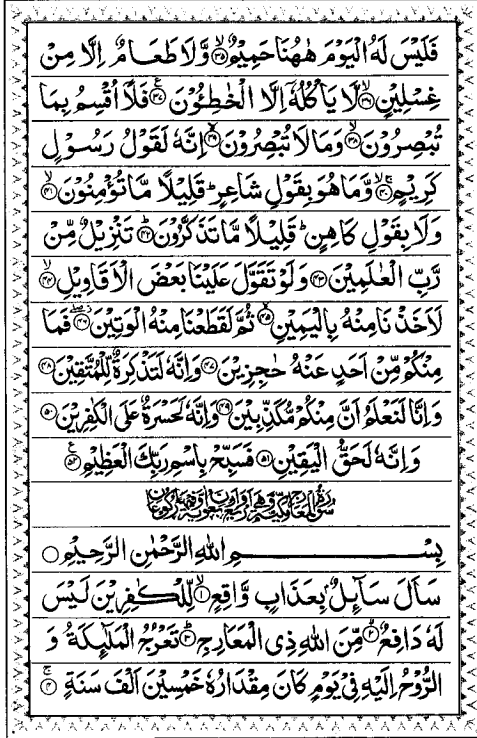 فَلَيْسَ لَهُ الْيَوْمَ هٰهُنَا حَمِيْمٌ ۙ﴿۳۵﴾ وَّلَا طَعَامٌ اِلَّا مِنْ
غِسْلِيْنٍ ۙ﴿۳۶﴾ لَّا يَاْكُلُهٗۤ اِلَّا الْخٰطِـُٔوْنَ ﴿۳۷﴾ فَلَاۤ اُقْسِمُ بِمَا
تُبْصِرُوْنَ ۙ﴿۳۸﴾ وَمَا لَا تُبْصِرُوْنَ ۙ﴿۳۹﴾ اِنَّهٗ لَقَوْلُ رَسُوْلٍ
كَرِيْمٍ ۚۙ﴿۴۰﴾ وَّمَا هُوَ بِقَوْلِ شَاعِرٍ ؕ قَلِيْلًا مَّا تُؤْمِنُوْنَ ۙ﴿۴۱﴾
وَلَا بِقَوْلِ كَاهِنٍ ؕ قَلِيْلًا مَّا تَذَكَّرُوْنَ ؕ﴿۴۲﴾ تَنْزِيْلٌ مِّنْ
رَّبِّ الْعٰلَمِيْنَ ﴿۴۳﴾ وَلَوْ تَقَوَّلَ عَلَيْنَا بَعْضَ الْاَقَاوِيْلِ ۙ﴿۴۴﴾
لَاَخَذْنَا مِنْهُ بِالْيَمِيْنِ ۙ﴿۴۵﴾ ثُمَّ لَقَطَعْنَا مِنْهُ الْوَتِيْنَ ﴿۴۶﴾ فَمَا
مِنْكُمْ مِّنْ اَحَدٍ عَنْهُ حٰجِزِيْنَ ﴿۴۷﴾ وَاِنَّهٗ لَتَذْكِرَةٌ لِّلْمُتَّقِيْنَ ﴿۴۸﴾
وَاِنَّا لَنَعْلَمُ اَنَّ مِنْكُمْ مُّكَذِّبِيْنَ ﴿۴۹﴾ وَاِنَّهٗ لَحَسْرَةٌ عَلَى الْكٰفِرِيْنَ ﴿۵۰﴾
وَاِنَّهٗ لَحَقُّ الْيَقِيْنِ ﴿۵۱﴾ فَسَبِّحْ بِاسْمِ رَبِّكَ الْعَظِيْمِ ﴿۵۲﴾
بِسْمِ اللّٰهِ الرَّحْمٰنِ الرَّحِيْمِ
سَاَلَ سَآئِلٌۢ بِعَذَابٍ وَّاقِعٍ ۙ﴿۱﴾ لِّلْكٰفِرِيْنَ لَيْسَ
لَهٗ دَافِعٌ ۙ﴿۲﴾ مِّنَ اللّٰهِ ذِي الْمَعَارِجِ ؕ﴿۳﴾ تَعْرُجُ الْمَلٰٓئِكَةُ وَ
الرُّوْحُ اِلَيْهِ فِيْ يَوْمٍ كَانَ مِقْدَارُهٗ خَمْسِيْنَ اَلْفَ سَنَةٍ ۚ﴿۴﴾